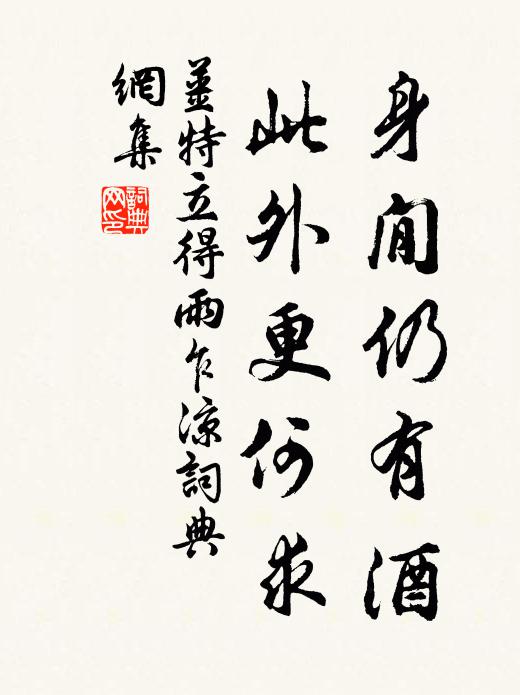 身閒仍有酒
此外更何求
姜特立得雨乍涼詞典
網集
詞典
网印